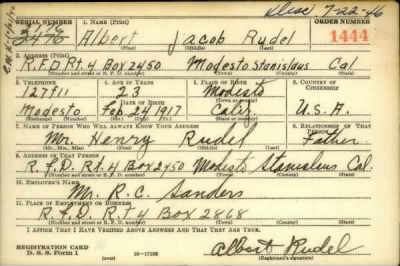 Disc 7-22-46
SERIAL NUMBER 1. NAME (Print) ORDER NUMBER
3478 Albert Jacob Rudel 1444
(First) (Middle) (Last)
2. ADDRESS (Print)
R.F.D Rt. 4 Box 2450 Modesto Stanislaus Cal
(Number and street or R. F. D. number) (Town) (County) (State)
3. TELEPHONE 4. AGE IN YEARS 5. PLACE OF BIRTH 6. COUNTRY OF CITIZENSHIP
127F11 23 Modesto
DATE OF BIRTH (Town or county)
Modesto Feb 24 1917 Calif. U.S.A.
(Exchange) (Number) (Mo.) (Day) (Yr.) (State or country)
7. NAME OF PERSON WHO WILL ALWAYS KNOW YOUR ADDRESS 8. RELATIONSHIP OF THAT PERSON
Mr. Henry Rudel Father
(Mr., Mrs., Miss) (First) (Middle) (Last)
9. ADDRESS OF THAT PERSON
R.F.D Rt 4 Box 2450 Modesto Stanislaus Cal.
(Number and street or R. F. D. number) (Town) (County) (State)
10. EMPLOYER'S NAME
Mr. R.C. Sanders
11. PLACE OF EMPLOYMENT OR BUSINESS
R.F.D. RT 4 Box 2868
(Number and street or R. F. D. number) (Town) (County) (State)
I AFFIRM THAT I HAVE VERIFIED ABOVE ANSWERS AND THAT THEY ARE TRUE.
REGISTRATION CARD
D. S. S. Form 1 (over) 16-17105 Albert Rudel
(Registrant's signature)